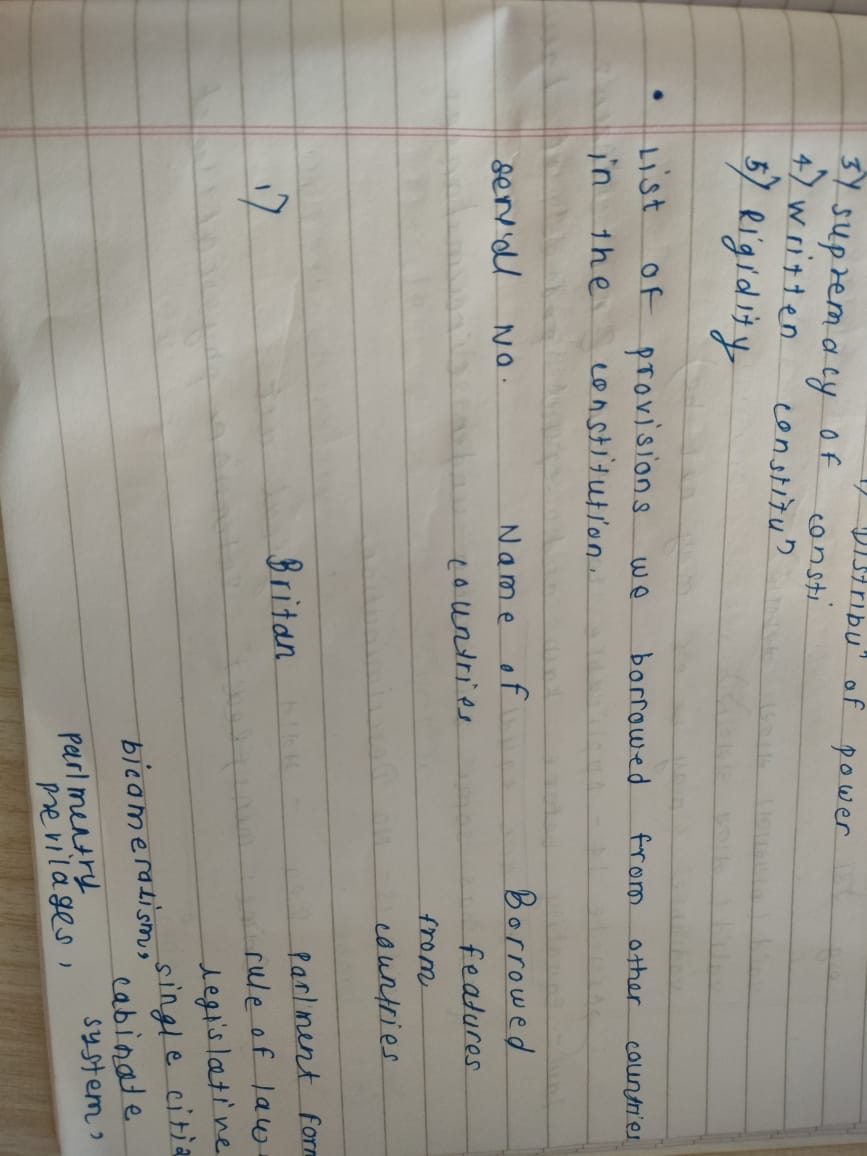 Distribuⁿ of power
3) supremacy of consti
4) written constituⁿ
5) Rigidity
• List of provisions we borrowed from other countries
in the constitution.
serial No. Name of countries Borrowed features from countries
1) Britan parlment form
rule of law
legislative
single citiz
bicameralism, cabinate system,
parlmentry previlages,